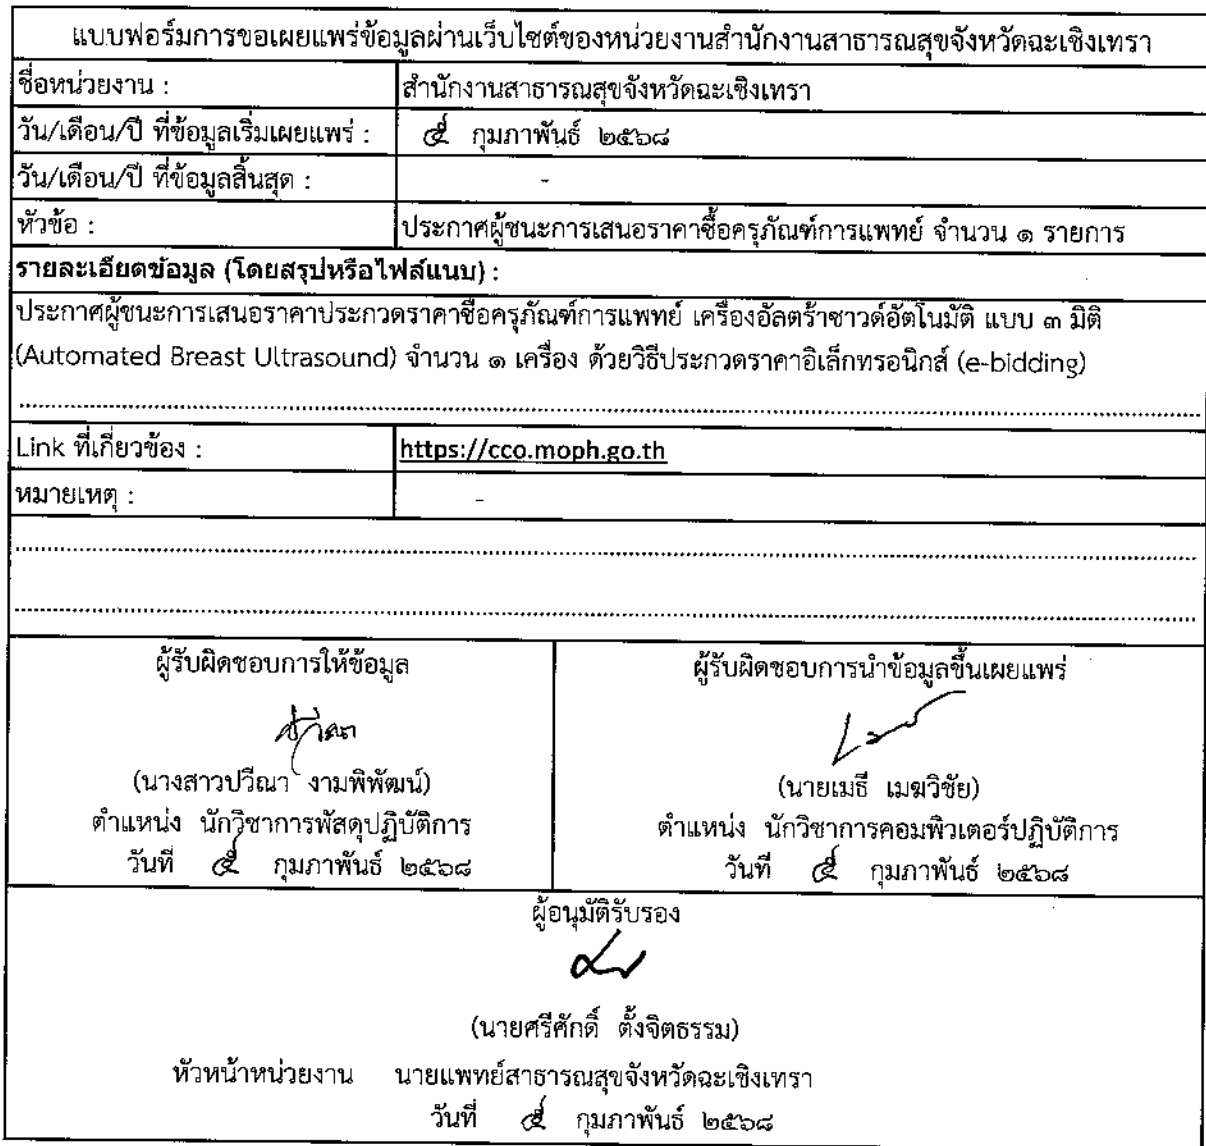 แบบฟอร์มการขอเผยแพร่ข้อมูลผ่านเว็บไซต์ของหน่วยงานสำนักงานสาธารณสุขจังหวัดฉะเชิงเทรา
ชื่อหน่วยงาน : สำนักงานสาธารณสุขจังหวัดฉะเชิงเทรา
วัน/เดือน/ปี ที่ข้อมูลเริ่มเผยแพร่ : ๕ กุมภาพันธ์ ๒๕๖๘
วัน/เดือน/ปี ที่ข้อมูลสิ้นสุด : -
หัวข้อ : ประกาศผู้ชนะการเสนอราคาซื้อครุภัณฑ์การแพทย์ จำนวน ๑ รายการ
รายละเอียดข้อมูล (โดยสรุปหรือไฟล์แนบ) :
ประกาศผู้ชนะการเสนอราคาประกวดราคาซื้อครุภัณฑ์การแพทย์ เครื่องอัลตร้าซาวด์อัตโนมัติ แบบ ๓ มิติ
(Automated Breast Ultrasound) จำนวน ๑ เครื่อง ด้วยวิธีประกวดราคาอิเล็กทรอนิกส์ (e-bidding)
Link ที่เกี่ยวข้อง : https://cco.moph.go.th
หมายเหตุ : -
ผู้รับผิดชอบการให้ข้อมูล
(นางสาวปวีณา งามพิพัฒน์)
ตำแหน่ง นักวิชาการพัสดุปฏิบัติการ
วันที่ ๕ กุมภาพันธ์ ๒๕๖๘
ผู้รับผิดชอบการนำข้อมูลขึ้นเผยแพร่
(นายเมธี เมฆวิชัย)
ตำแหน่ง นักวิชาการคอมพิวเตอร์ปฏิบัติการ
วันที่ ๕ กุมภาพันธ์ ๒๕๖๘
ผู้อนุมัติรับรอง
(นายศรีศักดิ์ ตั้งจิตธรรม)
หัวหน้าหน่วยงาน นายแพทย์สาธารณสุขจังหวัดฉะเชิงเทรา
วันที่ ๕ กุมภาพันธ์ ๒๕๖๘